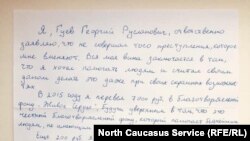 Я, Гуев Георгий Русланович, ответственно
заявляю, что не совершал того преступления, которое
мне вменяют. Вся моя вина заключается в том,
что я хотел помогать людям и считал своим
долгом делать это даже при своих скромных возможнос-
тях.
В 2015 году я перевел 2000 руб. в Благотворительный
фонд "Живое сердце", будучи уверенным в том, что это
честный Благотворительный фонд, который помогает
людям, не имеющим
Ещё 200 руб. я
North Caucasus Service (RFE/RL)